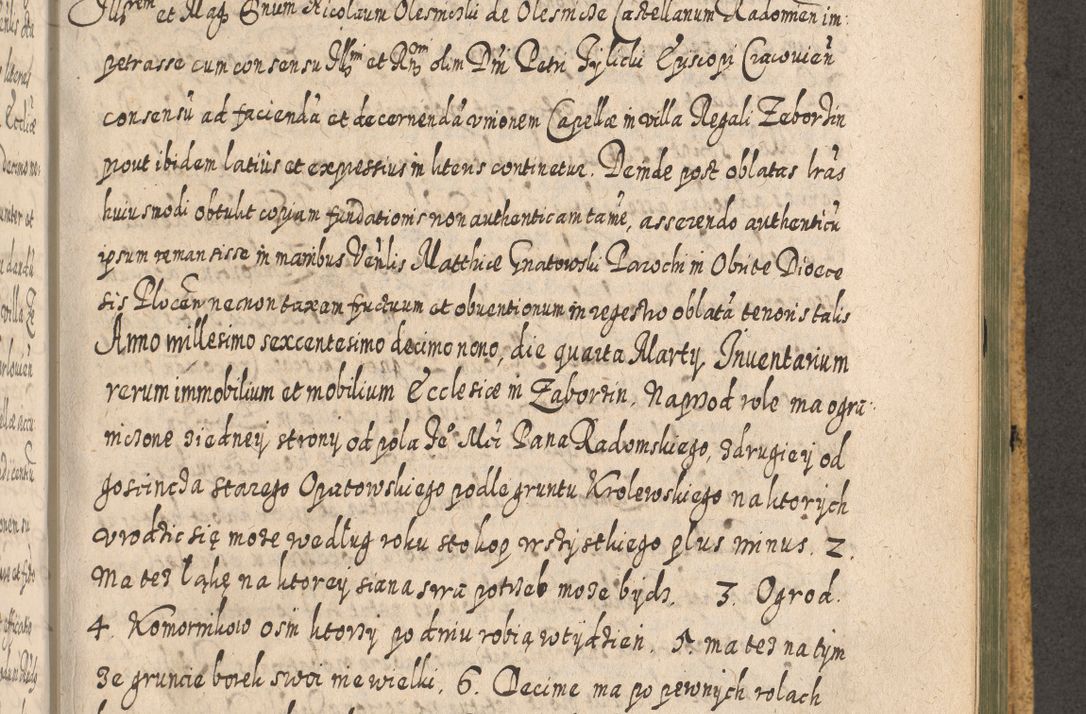 Illrem et Mag Dnum Nicolaum Olesnicki de Olesnicze Castellanum Radomien im:
petrasse cum consensu Illm et Rm olim Dni Petri Tylicki Episcopi Cracovień
consensū ad faciendā et decernendā vnionem Capellæ in villa Regali Zaborzin
prout ibidem latius et expressius in literis continetur. Deinde post oblatas lrās
huiusmodi obtulit copiam fundationis non authenticam tamē, asserendo authenticū
ipsum remansisse in manibus Venlis Matthiæ Gnatowski Parochi in Obrite Diœce
sis Plocen necnon taxam fructuum et obventionum in regestro oblatā tenoris talis
Anno millesimo sexcentesimo decimo nono, die quarta Marty. Inventarium
rerum immobilium et mobilium Ecclesiæ in Zaborzin. Naprzod role ma ogra
niczone ziedney strony od pola Je° Mci Pana Radomskiego, zdrugiey od
goscincza starego Opatowskiego podle gruntu Krolewskiego na ktorych
vrodzic się może według roku sto kop wszystkiego plus minus. 2.
Ma tez Łąkę na ktorey siana swa potrzeb może bydz. 3. Ogrod.
4. Komornikow osm ktorzy po dniu robią w tydzień. 5. ma tez na tym
ze gruncie borek swoi niewielki. 6. Decime ma po pewnych rolach